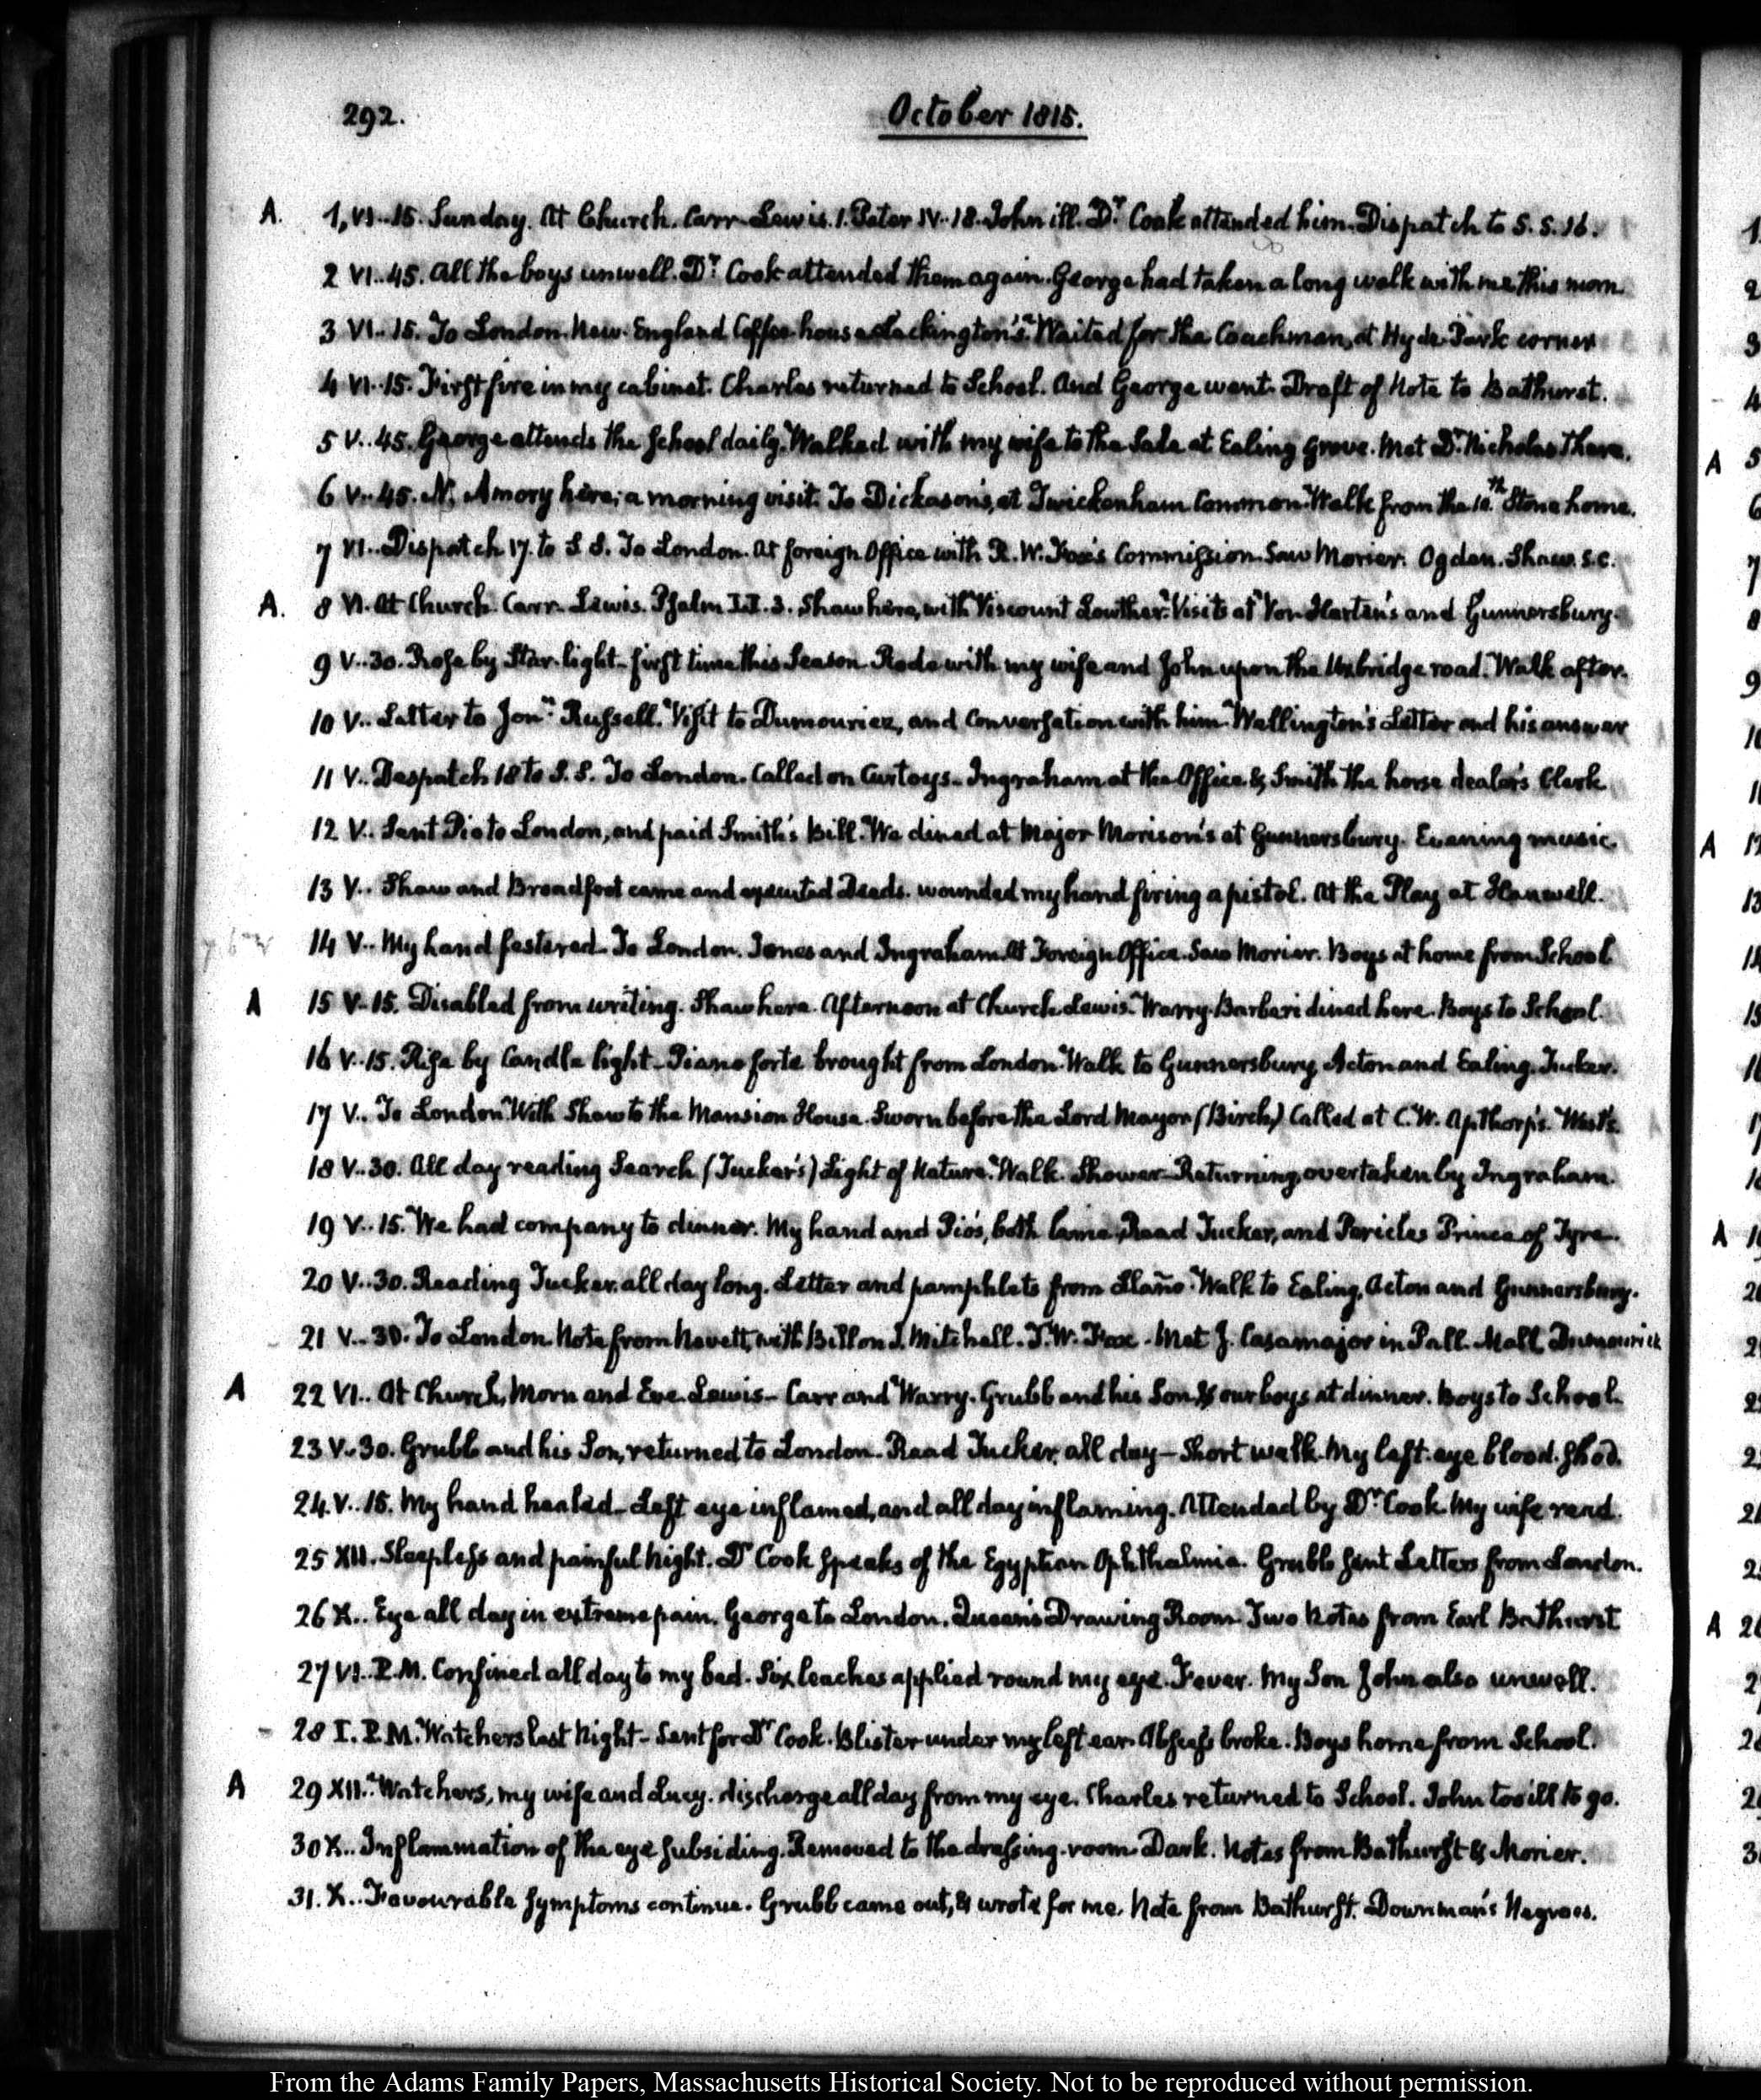 292.
October 1815.
A. 1, VI..15. Sunday. At Church. Carr. Lewis. 1. Peter IV. 18. John ill. Dr. Cook attended him. Dispatch to S. S. 16.
2 VI..45. All the boys unwell. Dr. Cook attended them again. George had taken a long walk with me this morn.
3 VI..15. To London. New-England Coffee-house Lackington's. Waited for the Coachman, at Hyde-Park corner
4 VI..15. First fire in my cabinet. Charles returned to School. And George went. Draft of Note to Bathurst.
5 V..45. George attends the School daily. Walked with my wife to the Sale at Ealing Grove. Met Dr. Nicholas there.
6 V..45. N. Amory here; a morning visit. To Dickason's, at Twickenham Common. Walk from the 10.th Stone home.
7 VI.. Dispatch 17. to S S. To London. At foreign Office with R. W. Fox's Commission. Saw Morier. Ogden. Shaw. &c.
A. 8 VI. At Church. Carr. Lewis. Psalm II. 3. Shaw here, with Viscount Lowther. Visits at Von Harten's and Gunnersbury.
9 V..30. Rose by Star-light—first time this Season. Rode with my wife and John upon the Uxbridge road. Walk after.
10 V.. Letter to Jon.n Russell. Visit to Dumouriez, and Conversation with him. Wellington's Letter and his answer
11 V.. Despatch 18 to S. S. To London. Called on Curtoys. Ingraham at the Office & Smith the horse dealer's Clerk
12 V.. Sent Pio to London, and paid Smith's Bill. We dined at Major Morison's at Gunnersbury. Evening music.
13 V.. Shaw and Broadfoot came and executed Deeds. wounded my hand firing a pistol. At the Play at Hanwell.
14 V.. My hand festered. To London. Jones and Ingraham. At Foreign Office. Saw Morier. Boys at home from School
A 15 V..15. Disabled from writing. Shaw here. Afternoon at Church. Lewis. Warry. Barberi dined here. Boys to School.
16 V..15. Rise by Candle light—Piano forte brought from London. Walk to Gunnersbury, Acton and Ealing. Tucker.
17 V.. To London. With Shaw to the Mansion House. Sworn before the Lord Mayor (Birch) Called at C. W. Apthorp's. West's.
18 V..30. All day reading Search (Tucker's) Light of Nature. Walk. Shower—Returning, overtaken by Ingraham.
19 V..15. We had company to dinner. My hand and Pio's, both lame. Read Tucker, and Pericles Prince of Tyre.
20 V..30. Reading Tucker, all day long. Letter and pamphlets from Llaño. Walk to Ealing, Acton and Gunnersbury.
21 V..30. To London. Note from with Bill on J. Mitchell. T. W. Fox. Met J. Casamajor in Pall-Mall. Dumouriez
A 22 VI.. At Church, Morn and Eve. Lewis—Carr and Warry. Grubb and his Son, & our boys at dinner. Boys to School.
23 V..30. Grubb and his Son, returned to London. Read Tucker, all day—Short walk. My left-eye blood-shod.
24. V..15. My hand healed—Left eye inflamed, and all day inflaming. Attended by Dr. Cook. My wife read.
25 XII. Sleepless and painful Night. Dr Cook speaks of the Egyptian Ophthalmia. Grubb sent Letters from London.
26 X.. Eye all day in extreme pain. George to London. Queen's Drawing Room. Two Notes from Earl Bathurst
27 VI.. P.M. Confined all day to my bed. Six leaches applied round my eye. Fever. My Son John also unwell.
28 I. P.M. Watchers last Night—Sent for Dr Cook. Blister under my left ear. Abscess broke. Boys home from School.
A 29 XII.. Watchers, my wife and Lucy. discharge all day from my eye. Charles returned to School. John too ill to go.
30 X.. Inflammation of the eye subsiding. Removed to the dressing-room. Dark. Notes from Bathurst & Morier.
31. X.. Favourable symptoms continue. Grubb came out, & wrote for me. Note from Bathurst. Downman's Negroes.
From the Adams Family Papers, Massachusetts Historical Society. Not to be reproduced without permission.